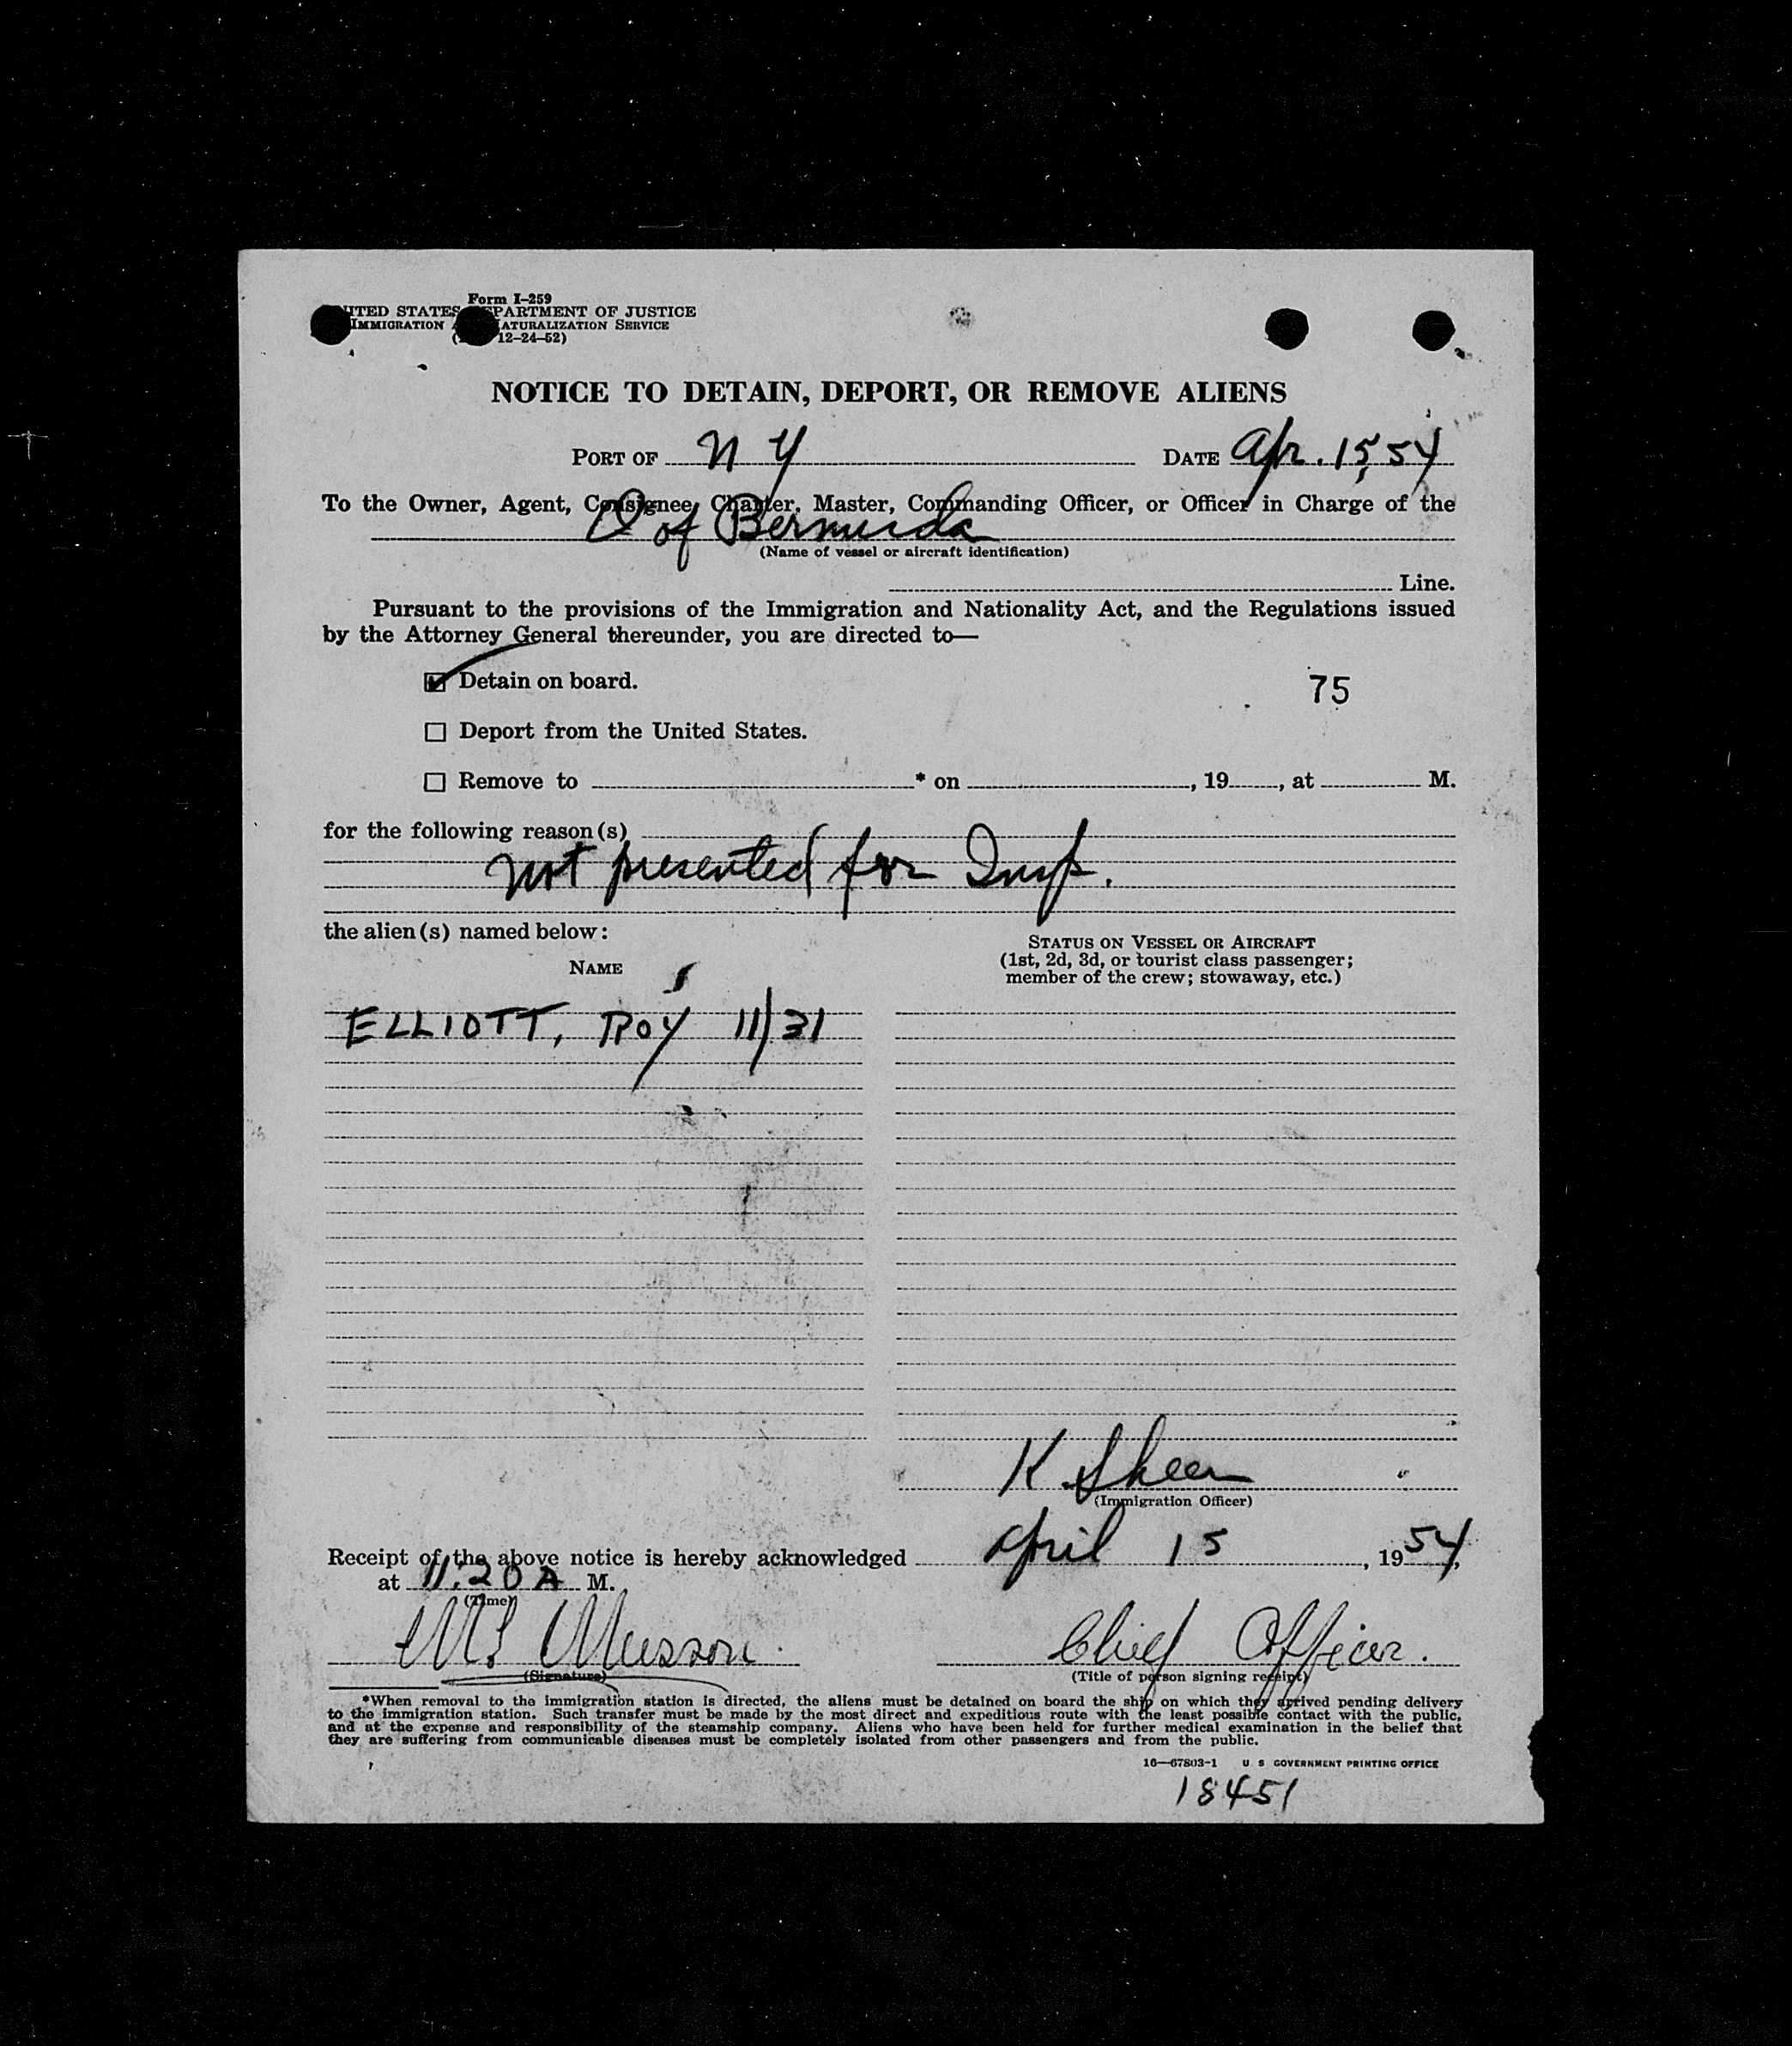 Form I-259
ITED STATES PARTMENT OF JUSTICE
IMMIGRATION ATURALIZATION SERVICE
( 12-24-52)
NOTICE TO DETAIN, DEPORT, OR REMOVE ALIENS
PORT OF N Y DATE Apr. 15, 54
To the Owner, Agent, Consignee, Charter, Master, Commanding Officer, or Officer in Charge of the
Q of Bermuda
(Name of vessel or aircraft identification)
Line.
Pursuant to the provisions of the Immigration and Nationality Act, and the Regulations issued
by the Attorney General thereunder, you are directed to—
Detain on board.
75
Deport from the United States.
Remove to * on , 19 , at M.
for the following reason(s)
not presented for Insp.
the alien(s) named below:
STATUS ON VESSEL OR AIRCRAFT
(1st, 2d, 3d, or tourist class passenger;
member of the crew; stowaway, etc.)
NAME
ELLIOTT, ROY 11/31
K. Sheer
(Immigration Officer)
Receipt of the above notice is hereby acknowledged April 15, 1954,
at 11:20 A M.
(Time)
Musson. Chief Officer.
(Signature) (Title of person signing receipt)
*When removal to the immigration station is directed, the aliens must be detained on board the ship on which they arrived pending delivery
to the immigration station. Such transfer must be made by the most direct and expeditious route with the least possible contact with the public,
and at the expense and responsibility of the steamship company. Aliens who have been held for further medical examination in the belief that
they are suffering from communicable diseases must be completely isolated from other passengers and from the public.
16—67803-1 U S GOVERNMENT PRINTING OFFICE
18451